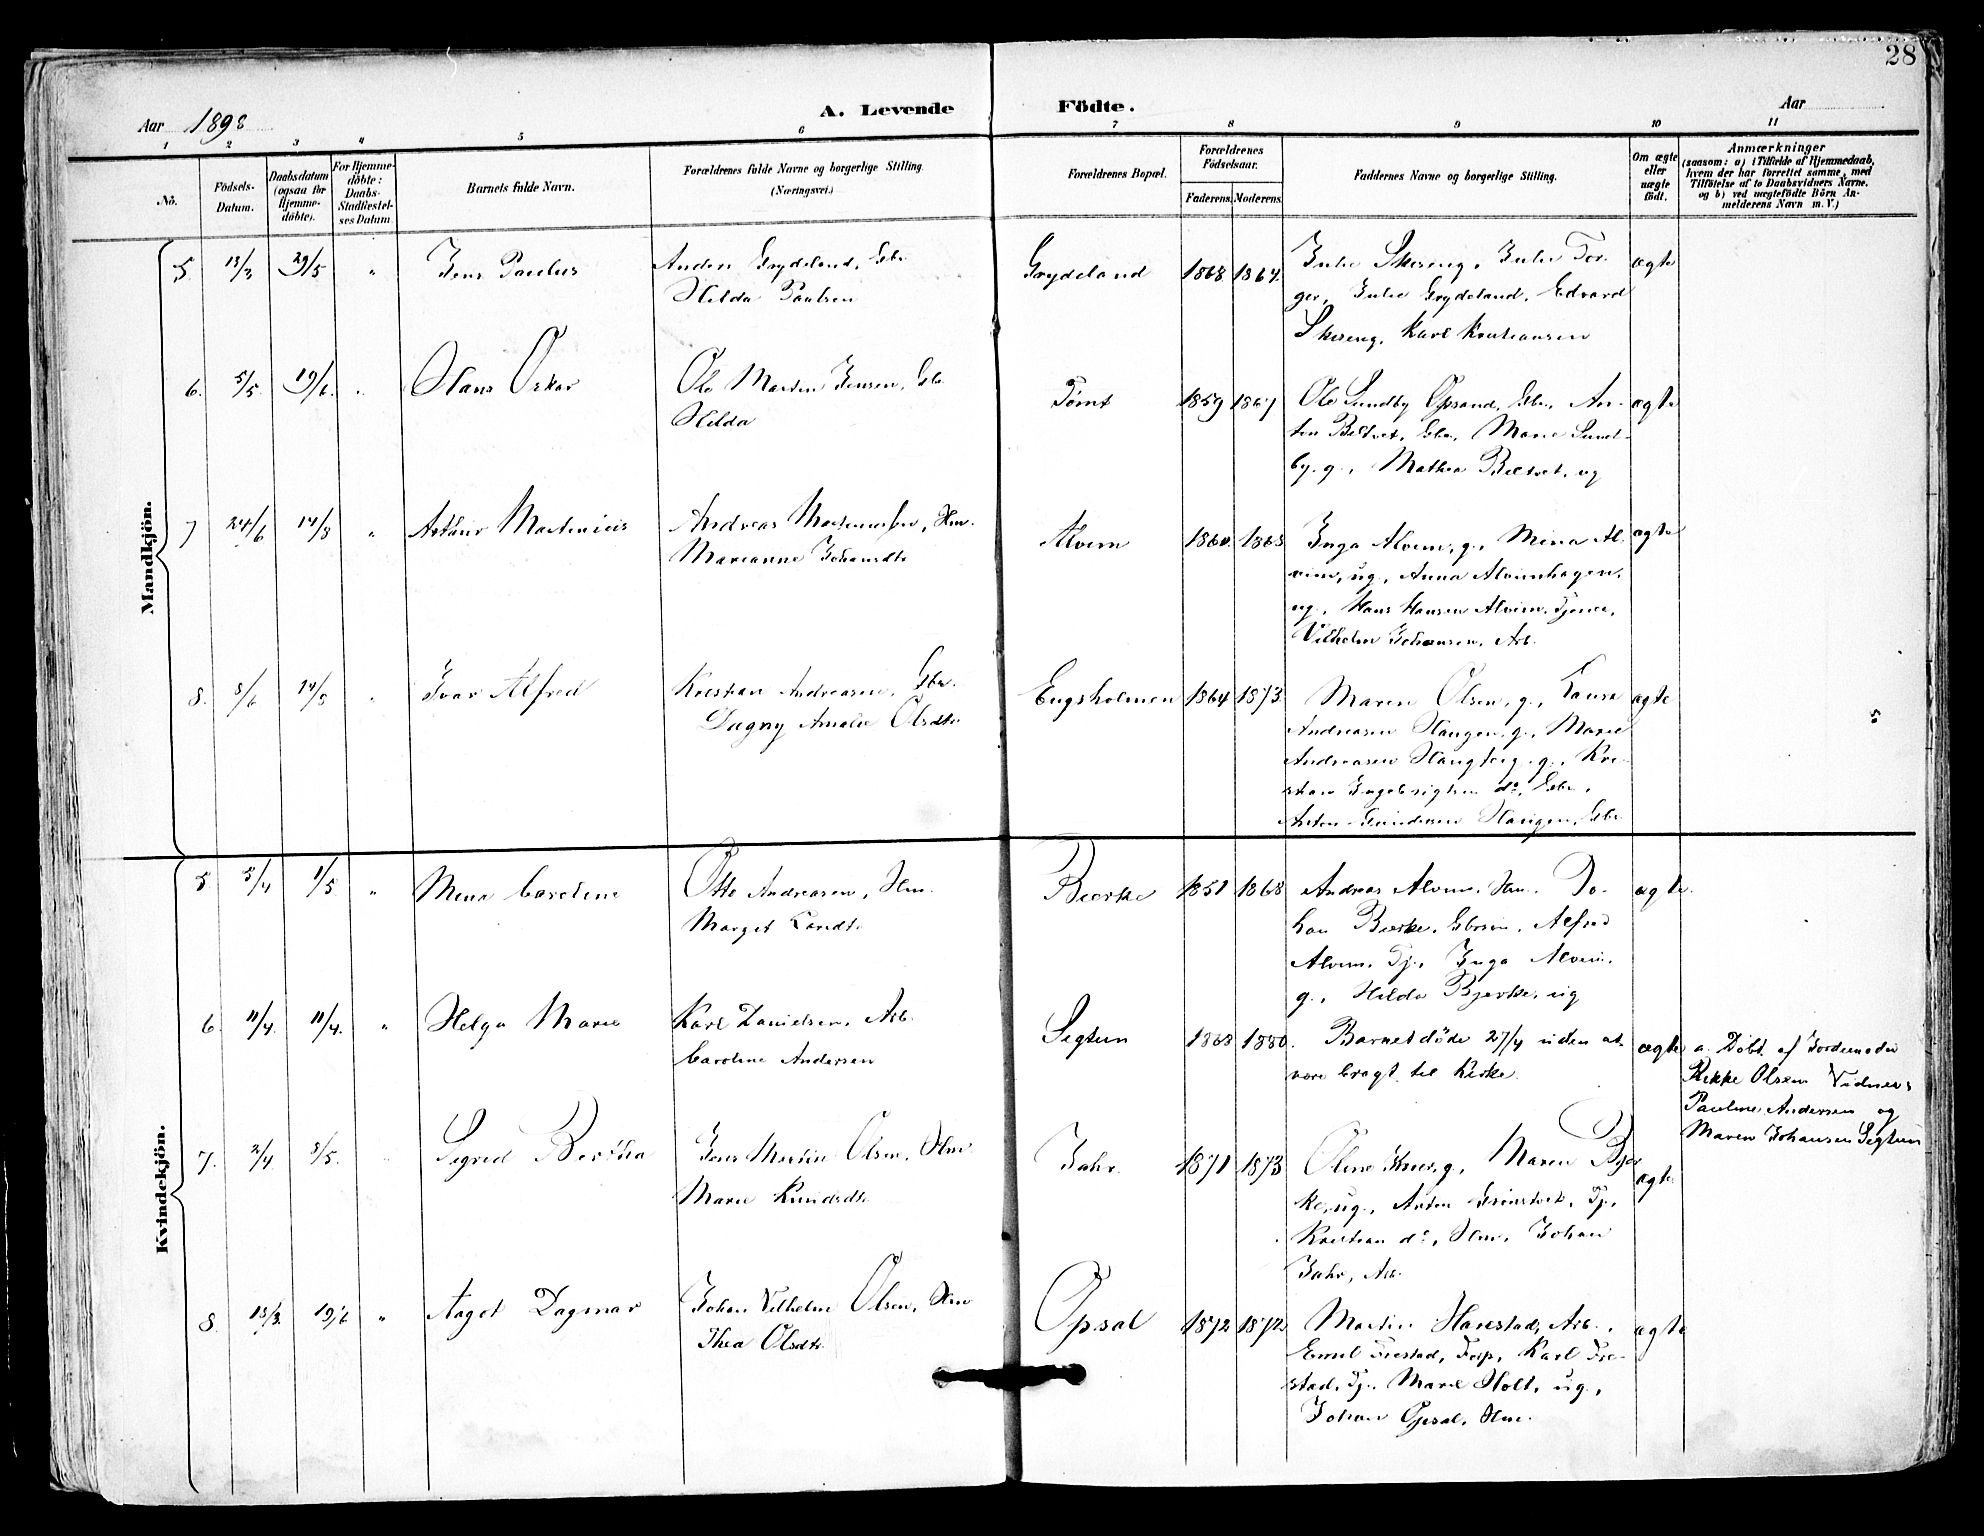 28
Aar 1898
A. Levende
Födte.
Aar
1 2 3 4 5 6 7 8 9 10 11
No.
Födsels-
Datum.
Daabsdatum
(ogsaa for
Hjemme-
döbte).
For Hjemme-
döbte:
Daabs-
Stadfæstel-
ses Datum
Barnets fulde Navn.
Forældrenes fulde Navne og borgerlige Stilling.
(Næringsvei.)
Forældrenes Bopæl.
Forældrenes
Födselsaar.
Faderens Moderens
Faddernes Navne og borgerlige Stilling.
Om ægte
eller
uægte
födt.
Anmærkninger
(saasom: a) i Tilfælde af Hjemmedaab,
hvem der har forrettet samme, med
Tilföielse af to Daabsvidners Navne.
og b) ved uægtefödte Börn An-
melderens Navn m. V.)
Mandkjön.
5. 13/3 29/5 " Jens Paulus
Anders Grydeland, Gbr.
Hilda Paulsen
Grydeland 1868 1864
Julie Skereng, Julie Tor-
ger, Julie Grydeland, Edvard
Skereng, Karl Kristiansen
ægte
6. 5/5 19/6 " Hans Oskar
Ole Martin Jensen, Gbr
Hilda
Tomt 1859 1867
Ole Sundby Opsand, Gbr., An-
ton Biltvet, Gbr, Marie Sund-
by, g., Mathea Biltvet, ug
ægte
7 24/6 14/8 " Artur Martinius
Andreas Martinussen, Hm.
Marianne Johansdtr
Alvim 1860 1863
Inga Alvim, g., Mina Al-
vim, ug., Anna Alvimhagen,
ug., Hans Hansen Alvim, Tjener,
Vilhelm Johansen, Arb.
ægte
8. 8/6 14/8 " Ivar Alfred
Kristian Andreasen, Gbr.
Dagny Amalie Olsdtr
Engsholmen 1864 1873
Maren Olsen, g., Laura
Andreasen Haugen, g., Marie
Andreasen Haugberg, g., Kri-
stian Ingebrigtsen do, Gbr.,
Anton Gundersen Haugen, Gbr
ægte
Kvindekjön.
5 3/4 1/5 " Mina Caroline
Otto Andreasen, Hm.
Marget Larsdtr
Bierke 1851 1868
Andreas Alvim, Hm. Jo-
han Bierke, Gbrsøn, Alfred
Alvim, Tj., Inga Alvim,
g., Hilda Bjerke, ug
ægte
6 11/4 11/4. " Helga Marie
Karl Danielsen, Arb.
Caroline Andersen
Segtun 1868 1880.
Barnet döde 27/4 uden at
være bragt til Kirke.
ægte
a. Döbt af Jordemoder
Rikke Olsen Vidner:
Pauline Andersen og
Maren Johansen Segtun
7. 2/4 8/5. Sigrid Bertha
Jens Martin Olsen, Hm
Marie Knudsdtr
Jahr. 1871 1873
Oline Knier, g., Maren Bjer-
ke, ug., Anton Grønstvet, Tj.,
Kristian do, Hm, Johan
Jahr, Arb.
ægte
8. 13/3. 19/6 " Aagot Dagmar
Johan Vilhelm Olsen, Hm
Thea Olsdtr
Opsal 1872 1872
Martin Hanestad, Arb.,
Emil Frestad, Forp, Karl Fre-
stad, Tj. Marie Holt, ug.,
Johan Opsal, Hm.
ægte